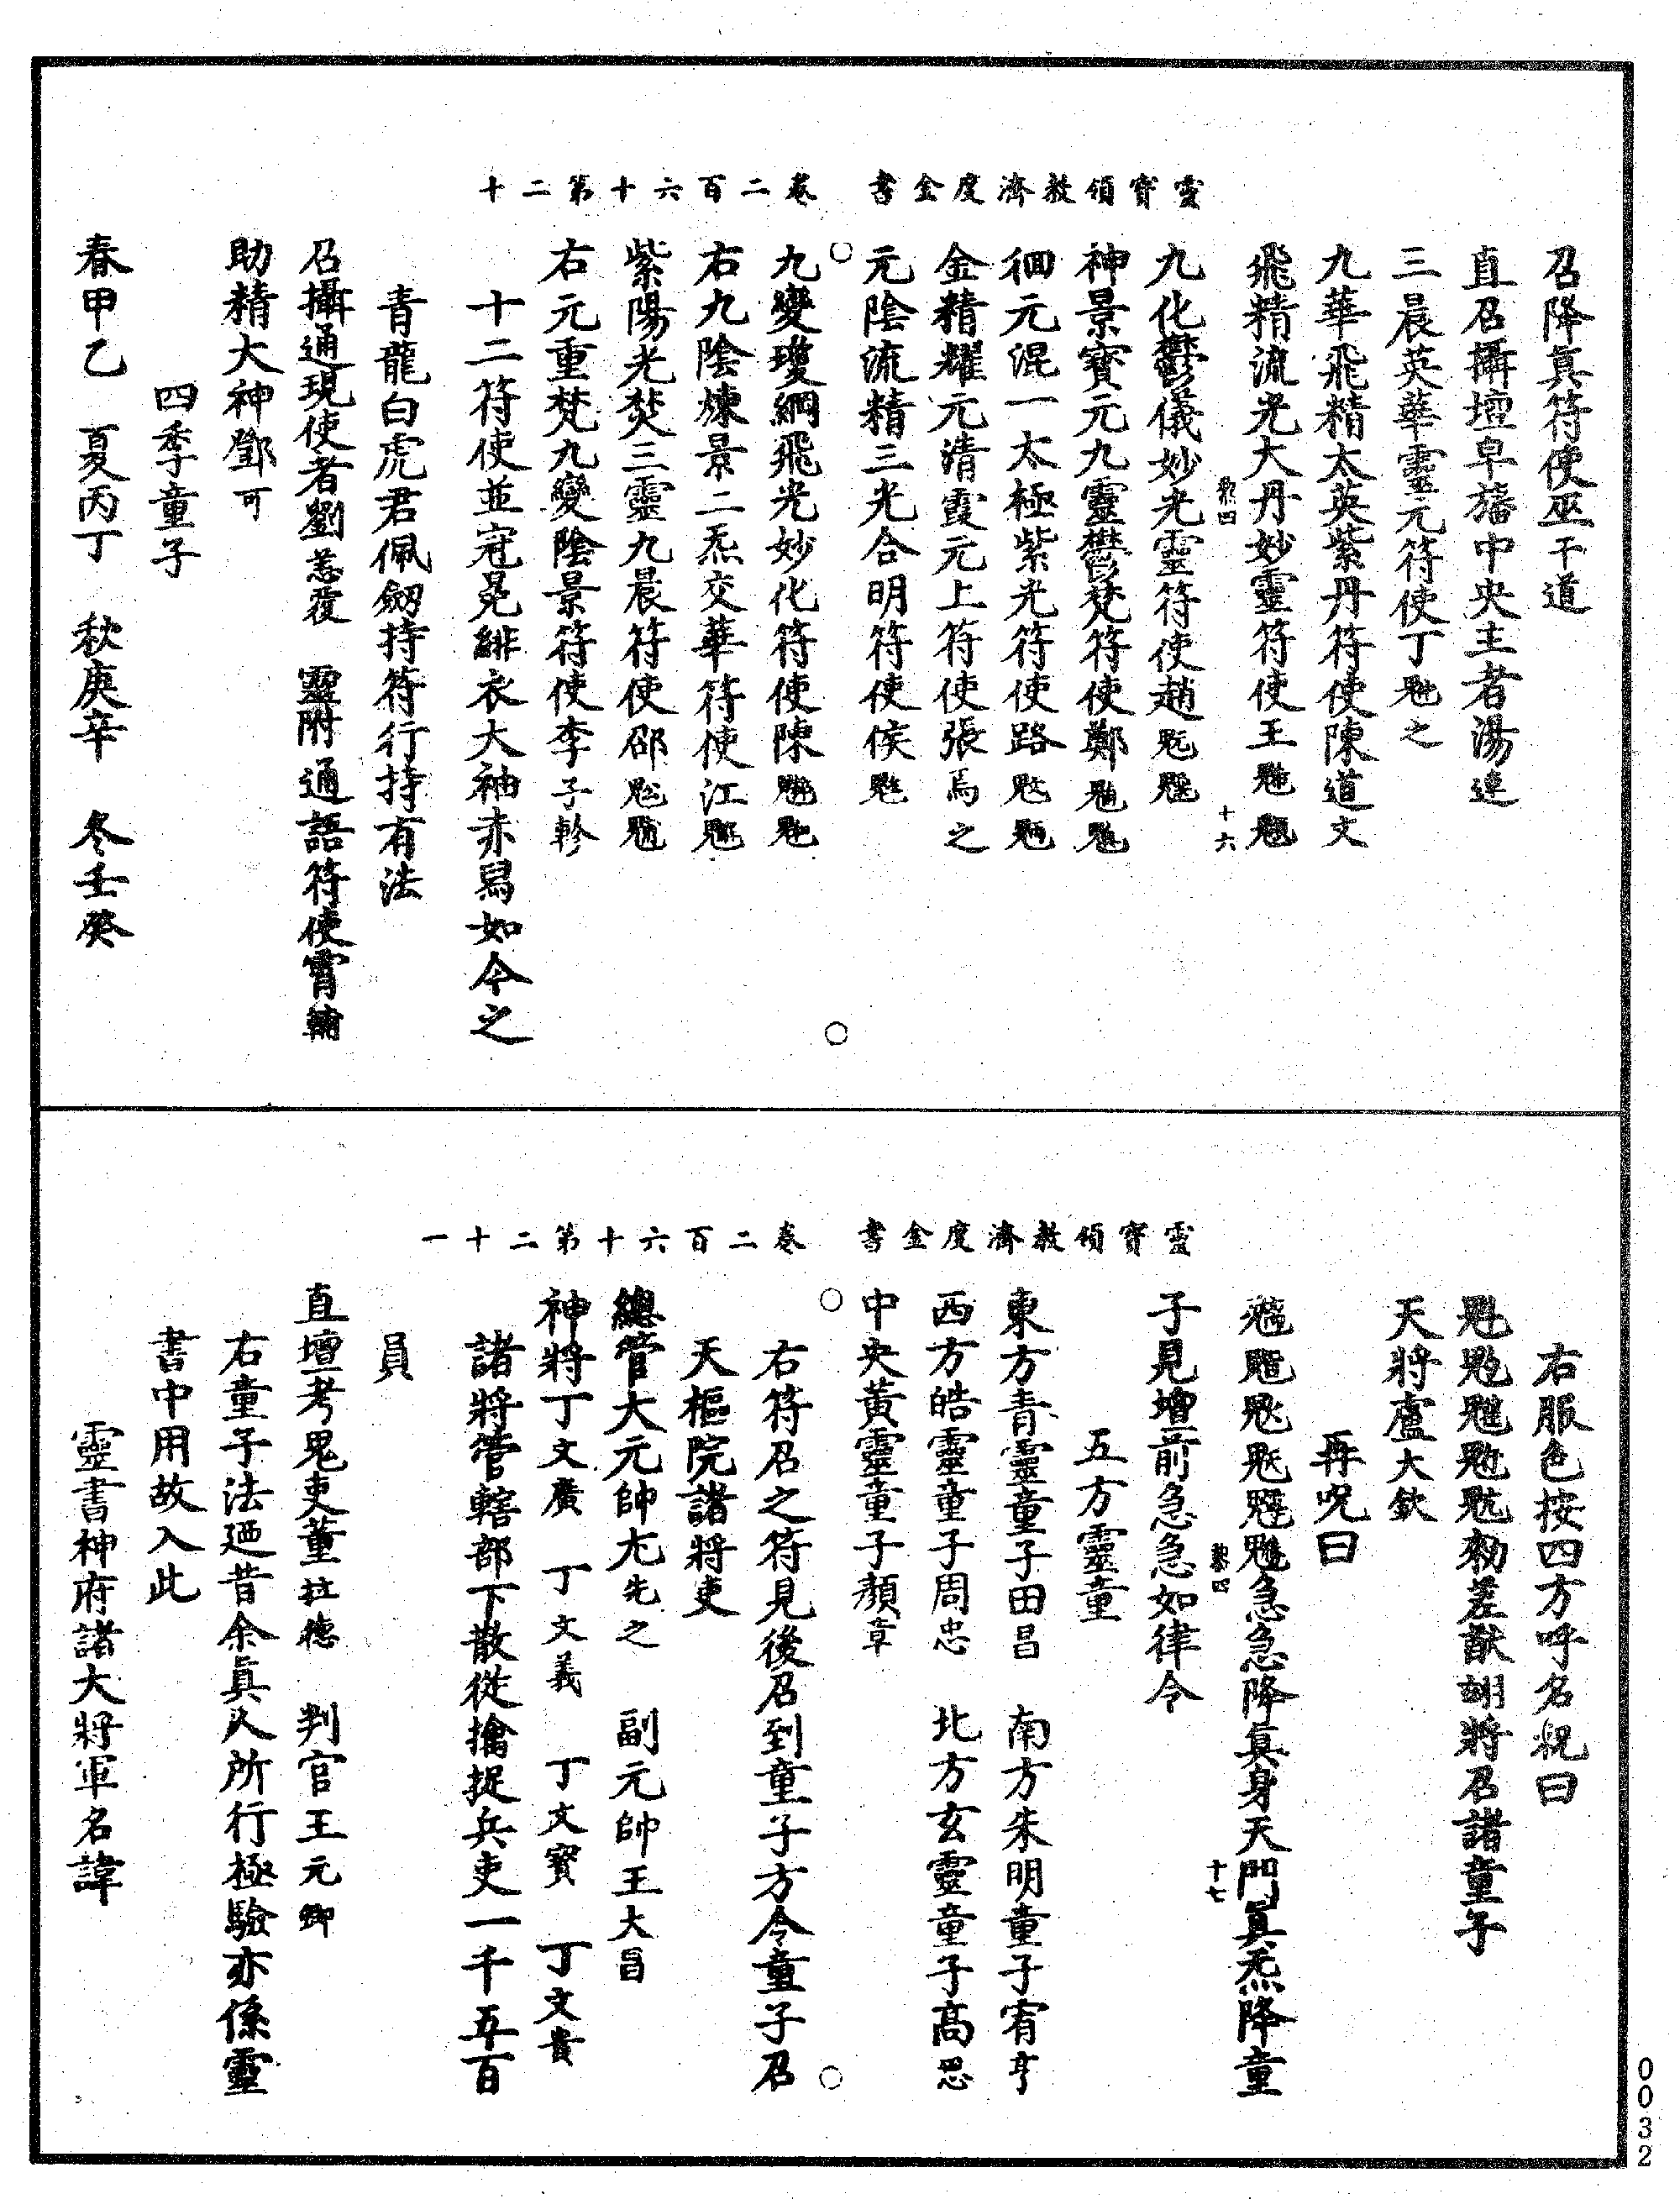 靈寶領教濟度金書　卷二百六十第二十
召降真符使巫干道
直召攝壇皁旛中央主者湯達
三晨英華靈元符使丁之
九華飛精太英紫丹符使陳道文
飛精流光大丹妙靈符使王
四　十六
九化鬱儀妙光靈符使趙
神景寳元九靈鬱梵符使鄭
徊元混一太極紫光符使路
金精耀元清霞元上符使張焉之
元陰流精三光合明符使侯
九變瓊綱飛光妙化符使陳
右九陰煉景二炁交華符使江
紫陽光焚三靈九晨符使邵
右元重梵九變陰景符使李子軫
十二符使並冠冕緋衣大袖赤舄如今之
青龍白虎君佩劒持符行持有法
召攝通現使者劉　靈附通語符使霄輔
助精大神鄧可
四季童子
春甲乙　夏丙丁　秋庚辛　冬壬癸
靈寶領教濟度金書　卷二百六十第二十一
右服色按四方呼名祝曰
差猷翃將召諸童子
天將盧大欽
再呪曰
急急降真身天門真炁降童
四　十七
子見壇前急急如律令
五方靈童
東方青靈童子田昌　南方朱明童子宥亨
西方皓靈童子周忠　北方玄靈童子高思
中央黃靈童子顏章
右符召之符見後召到童子方令童子召
天樞院諸將吏
總管大元帥先之　副元帥王大昌
神將丁文廣　丁文義　丁文寳　丁文貴
諸將管轄部下散從擒捉兵吏一千五百
員
直壇考鬼吏董拉德　判官王元卿
右童子法廼昔余真人所行極驗亦係靈
書中用故入此
靈書神府諸大將軍名諱
0032